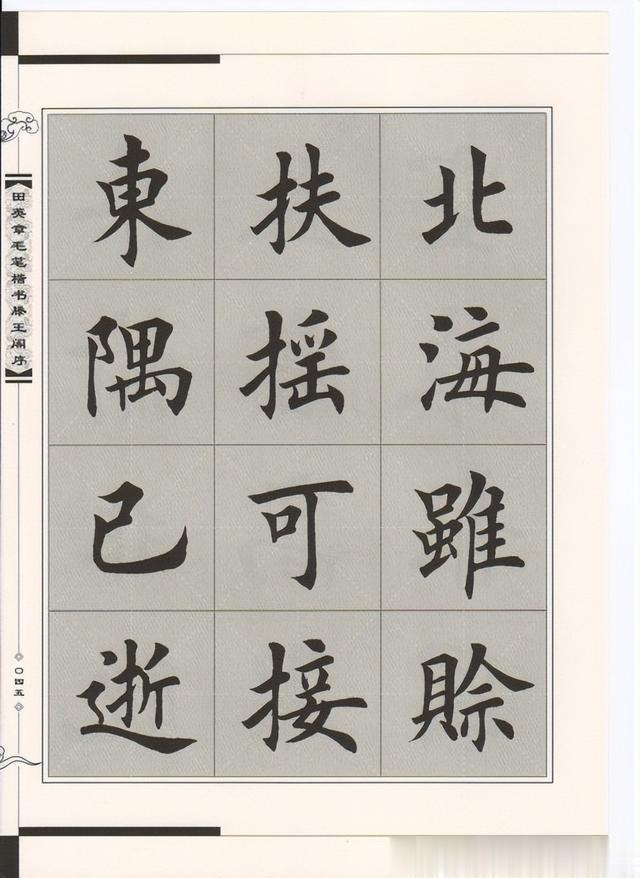 北海雖賒
扶摇可接
東隅已逝
田英章毛笔楷书滕王阁序
〇四五